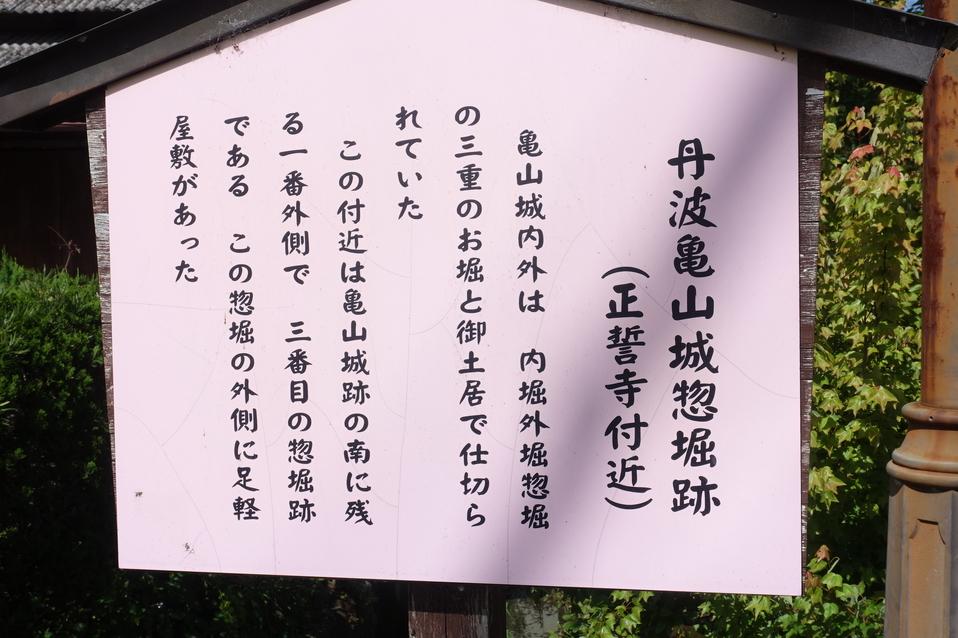 丹波亀山城惣堀跡
（正誓寺付近）
亀山城内外は　内堀外堀惣堀
の三重のお堀と御土居で仕切ら
れていた
この付近は亀山城跡の南に残
る一番外側で　三番目の惣堀跡
である　この惣堀の外側に足軽
屋敷があった